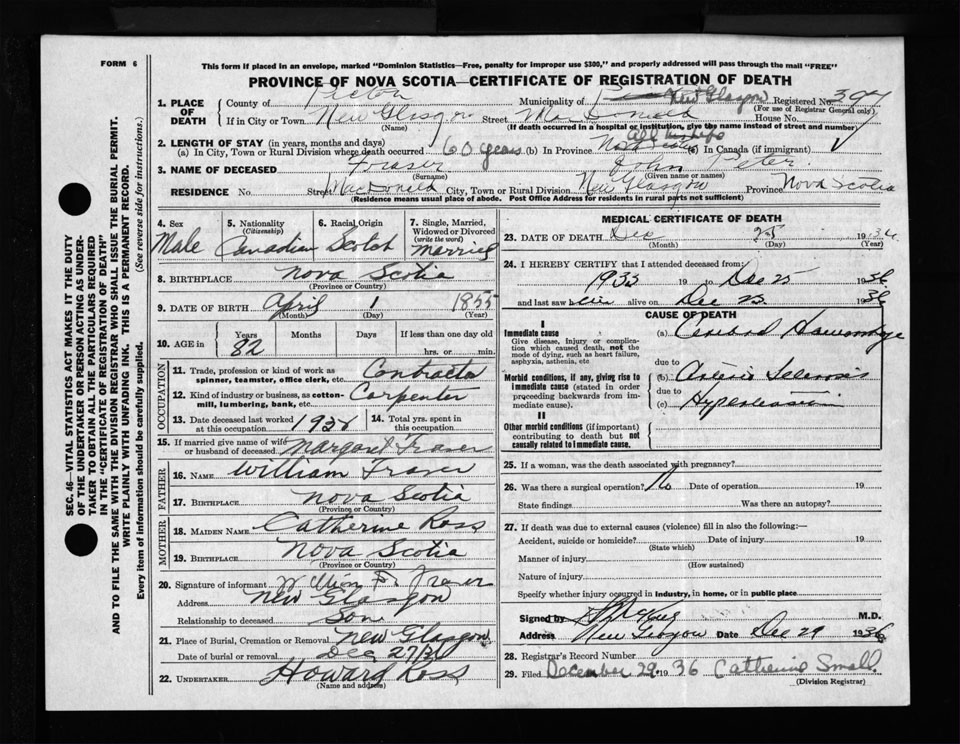 FORM 6
This form if placed in an envelope, marked "Dominion Statistics—Free, penalty for improper use $300," and properly addressed will pass through the mail "FREE"
PROVINCE OF NOVA SCOTIA—CERTIFICATE OF REGISTRATION OF DEATH
1. PLACE OF DEATH
County of Pictou Municipality of New Glasgow Registered No. 397
(For use of Registrar General only)
If in City or Town New Glasgow Street MacDonald House No.
(Name) (If death occurred in a hospital or institution, give the name instead of street and number)
2. LENGTH OF STAY (in years, months and days) all his life
(a) In City, Town or Rural Division where death occurred 60 years (b) In Province Nova Scotia (c) In Canada (if immigrant)
3. NAME OF DECEASED Fraser John Peter
(Surname) (Given name or names)
RESIDENCE No. Street MacDonald City, Town or Rural Division New Glasgow Province Nova Scotia
(Residence means usual place of abode. Post Office Address for residents in rural parts not sufficient)
4. Sex Male
5. Nationality (Citizenship) Canadian
6. Racial Origin Scotch
7. Single, Married, Widowed or Divorced (write the word) Married
8. BIRTHPLACE Nova Scotia
(Province or Country)
9. DATE OF BIRTH April 1 1855
(Month) (Day) (Year)
10. AGE in Years Months Days If less than one day old
82 hrs. or min.
OCCUPATION
11. Trade, profession or kind of work as spinner, teamster, office clerk, etc. Contractor
12. Kind of industry or business, as cotton-mill, lumbering, bank, etc. Carpenter
13. Date deceased last worked at this occupation
14. Total yrs. spent in this occupation
15. If married give name of wife or husband of deceased Margaret Fraser
FATHER
16. NAME William Fraser
17. BIRTHPLACE Nova Scotia
(Province or Country)
MOTHER
18. MAIDEN NAME Catherine Ross
19. BIRTHPLACE Nova Scotia
(Province or Country)
20. Signature of informant Fraser
Address New Glasgow
Relationship to deceased Son
21. Place of Burial, Cremation or Removal New Glasgow
Date of burial or removal Dec 27/36
22. UNDERTAKER Howard Ross
(Name and address)
MEDICAL CERTIFICATE OF DEATH
23. DATE OF DEATH Dec 25 1936
(Month) (Day) (Year)
24. I HEREBY CERTIFY that I attended deceased from:
1935 19 to Dec 25 1936
and last saw alive on Dec 23 1936
CAUSE OF DEATH
I
Immediate cause
Give disease, injury or complication which caused death, not the mode of dying, such as heart failure, asphyxia, asthenia, etc
(a) Cerebral Hemorrhage
due to
Morbid conditions, if any, giving rise to immediate cause (stated in order proceeding backwards from immediate cause).
(b) Arterio Sclerosis
due to
(c) Hypertension
II
Other morbid conditions (if important) contributing to death but not causally related to immediate cause.
25. If a woman, was the death associated with pregnancy?
26. Was there a surgical operation? No Date of operation 19
State findings Was there an autopsy?
27. If death was due to external causes (violence) fill in also the following:—
Accident, suicide or homicide? Date of injury 19
(State which)
Manner of injury
(How sustained)
Nature of injury
Specify whether injury occurred in industry, in home, or in public place
Signed by M.D.
Address New Glasgow Date Dec 29 1936
28. Registrar's Record Number
29. Filed December 29 1936 Catherine Small
(Division Registrar)
SEC. 46—VITAL STATISTICS ACT MAKES IT THE DUTY
OF THE UNDERTAKER OR PERSON ACTING AS UNDER-
TAKER TO OBTAIN ALL THE PARTICULARS REQUIRED
IN THE "CERTIFICATE OF REGISTRATION OF DEATH"
AND TO FILE THE SAME WITH THE DIVISION REGISTRAR WHO SHALL ISSUE THE BURIAL PERMIT.
WRITE PLAINLY WITH UNFADING INK. THIS IS A PERMANENT RECORD.
Every item of information should be carefully supplied. (See reverse side for instructions.)